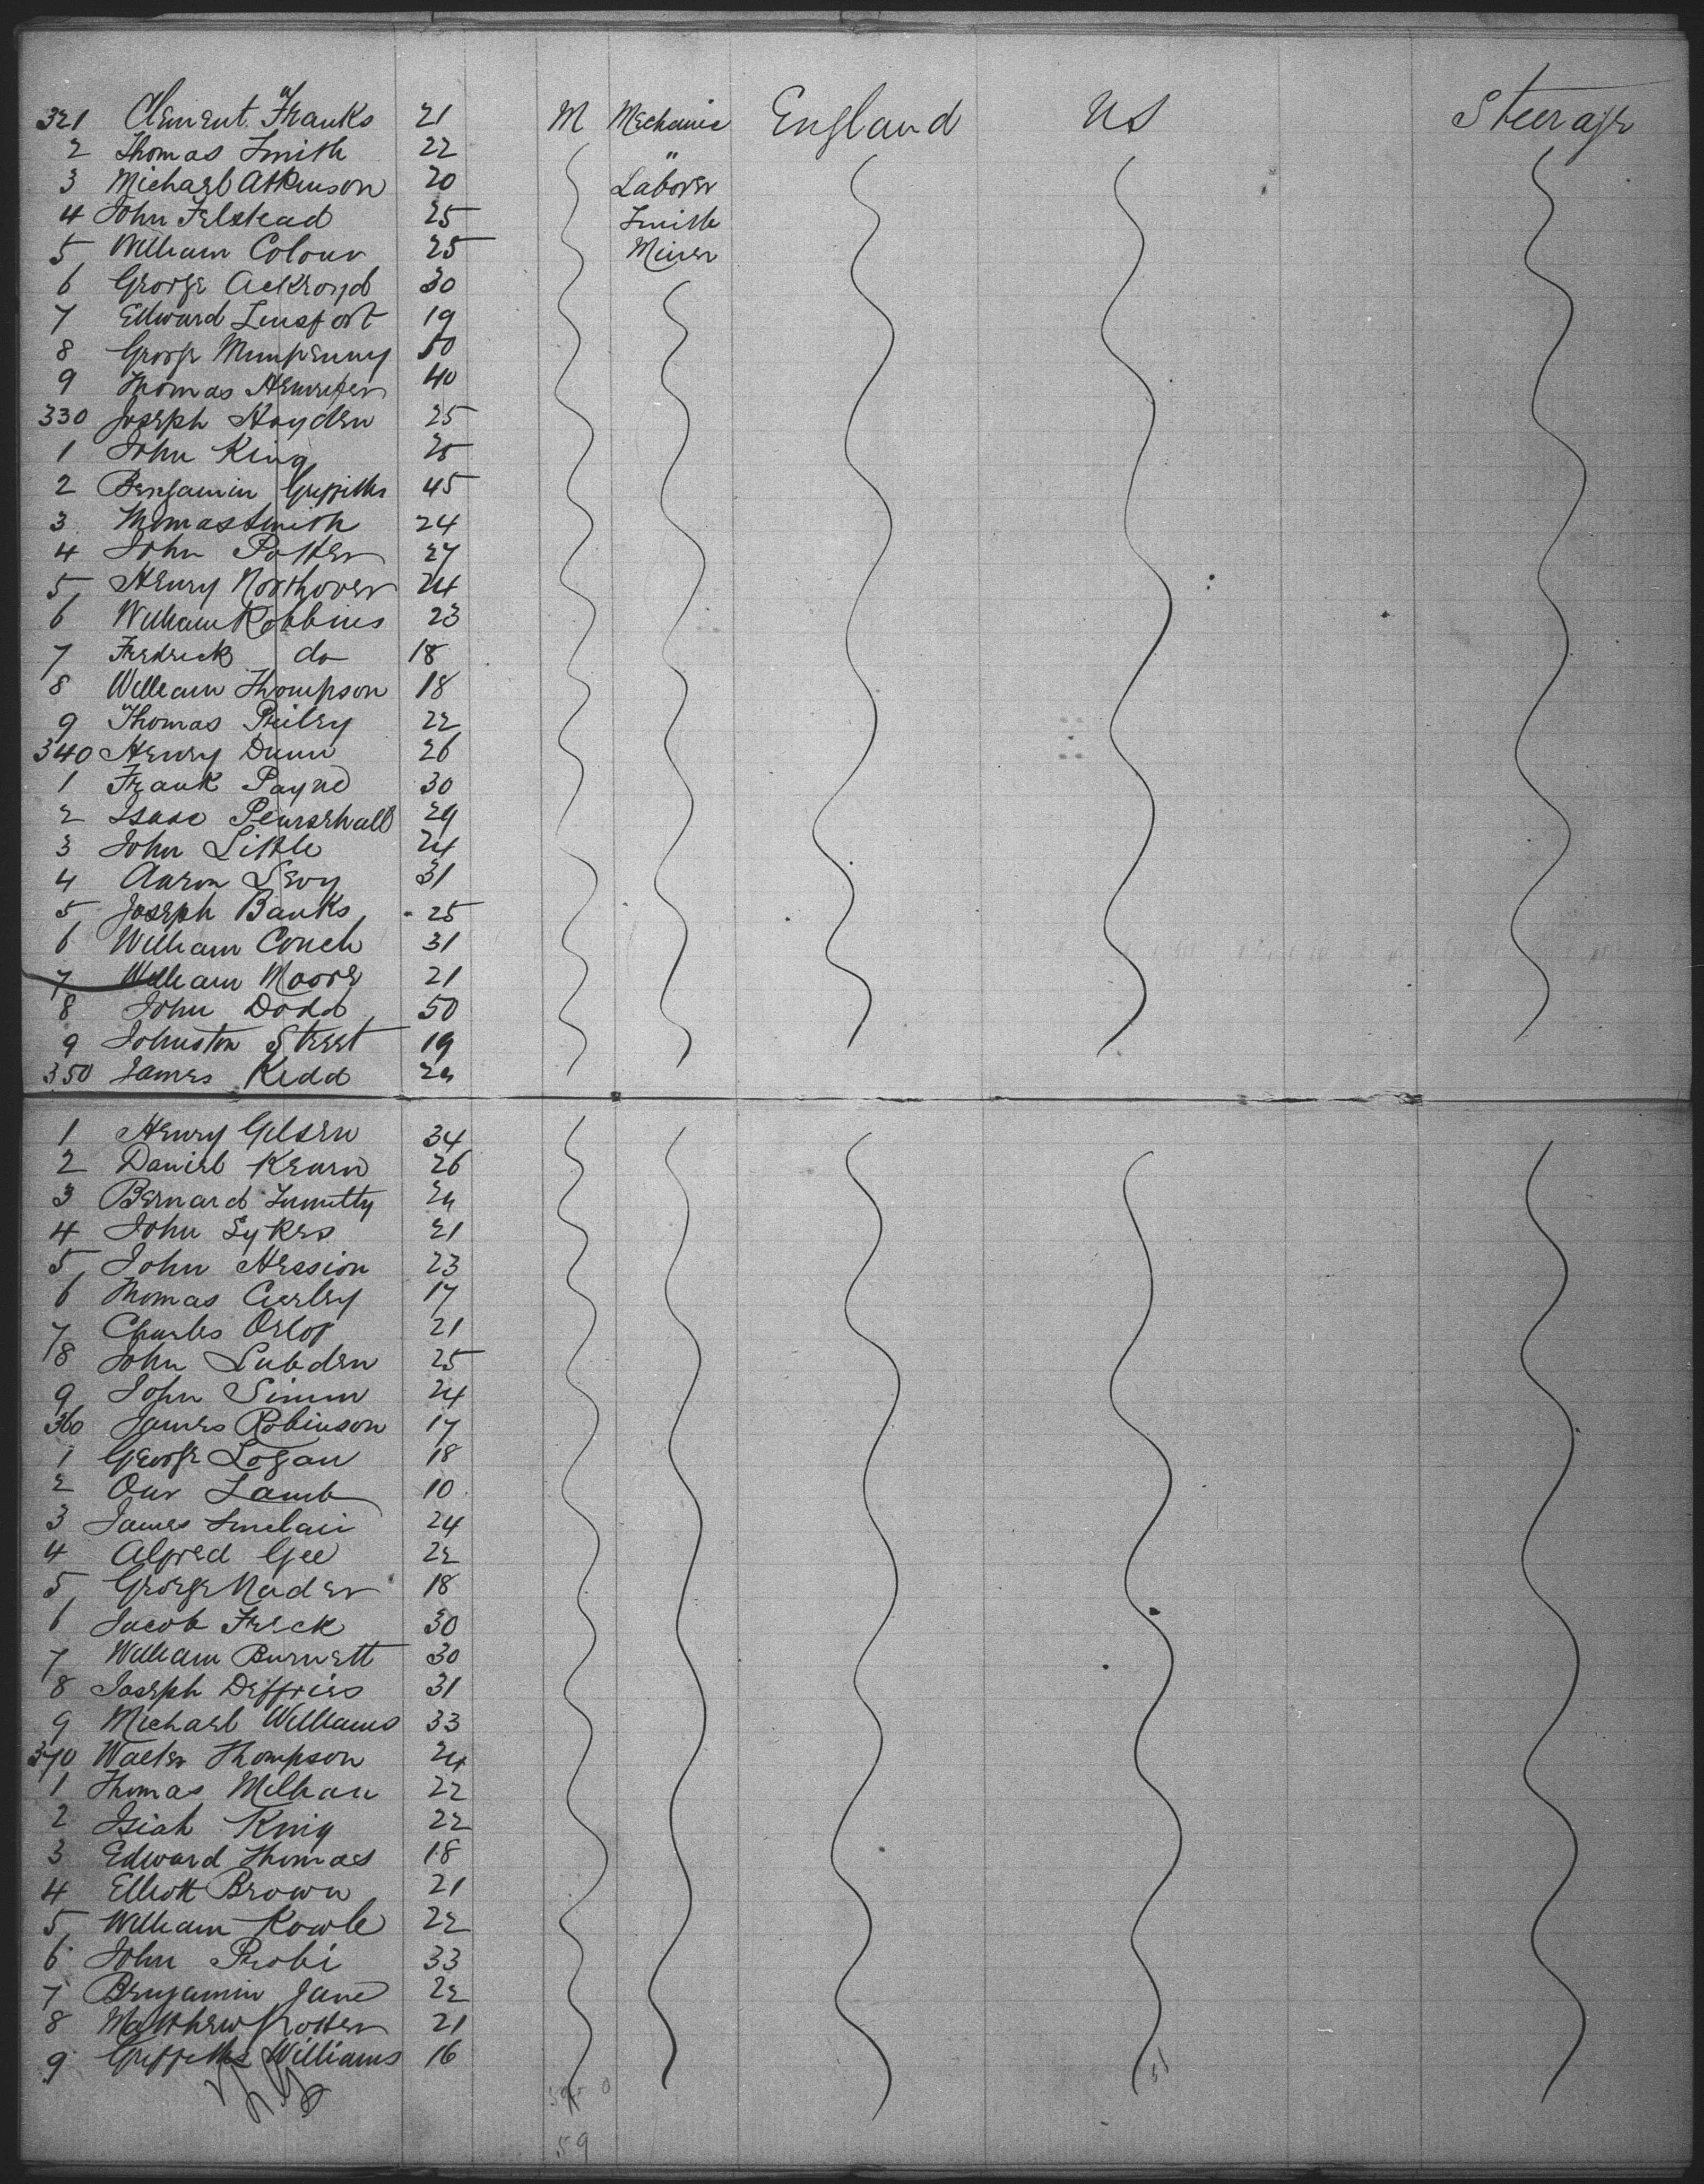 321 Clement Franks 21 M Mechanic England US Steerage
2 Thomas Smith 22 "
3 Michael Atkinson 20 Laborer
4 John Felstead 25 Smith
5 William Colour 25 Miner
6 George Ackroyd 30
7 Edward 19
8 George Munpenny 50
9 Thomas 40
330 Joseph Hayden 25
1 John King 25
2 Benjamin Griffiths 45
3 Thomas Smith 24
4 John Potter 27
5 Henry Northover 24
6 William Robbins 23
7 Fredrick do 18
8 William Thompson 18
9 Thomas Reiley 22
340 Henry Dunn 26
1 Frank Payne 30
2 Isaac 29
3 John Little 24
4 Aaron Levy 31
5 Joseph Banks 25
6 William Couch 31
7 William Moore 21
8 John Dodd 50
9 Johnston Street 19
350 James Kidd
1 Henry Gilsen 34
2 Daniel Kearn 26
3 Bernard
4 John Sykes 21
5 John Hession 23
6 Thomas 17
7 Charles 21
8 John Lubden 25
9 John Simm 24
360 James Robinson 17
1 George Logan 18
2 Our Lamb 10
3 James Sinclair 24
4 Alfred Gee 22
5 George Nader 18
6 Jacob Freck 30
7 William Burnett 30
8 Joseph Deffries 31
9 Michael Williams 33
370 Walter Thompson 24
1 Thomas Milhan 22
2 Isiah King 22
3 Edward Thomas 18
4 Elliott Brown 21
5 William Rowle 22
6 John Probi 33
7 Benjamin Jane 22
8 Matthew Trotter 21
9 Griffiths Williams 16
59